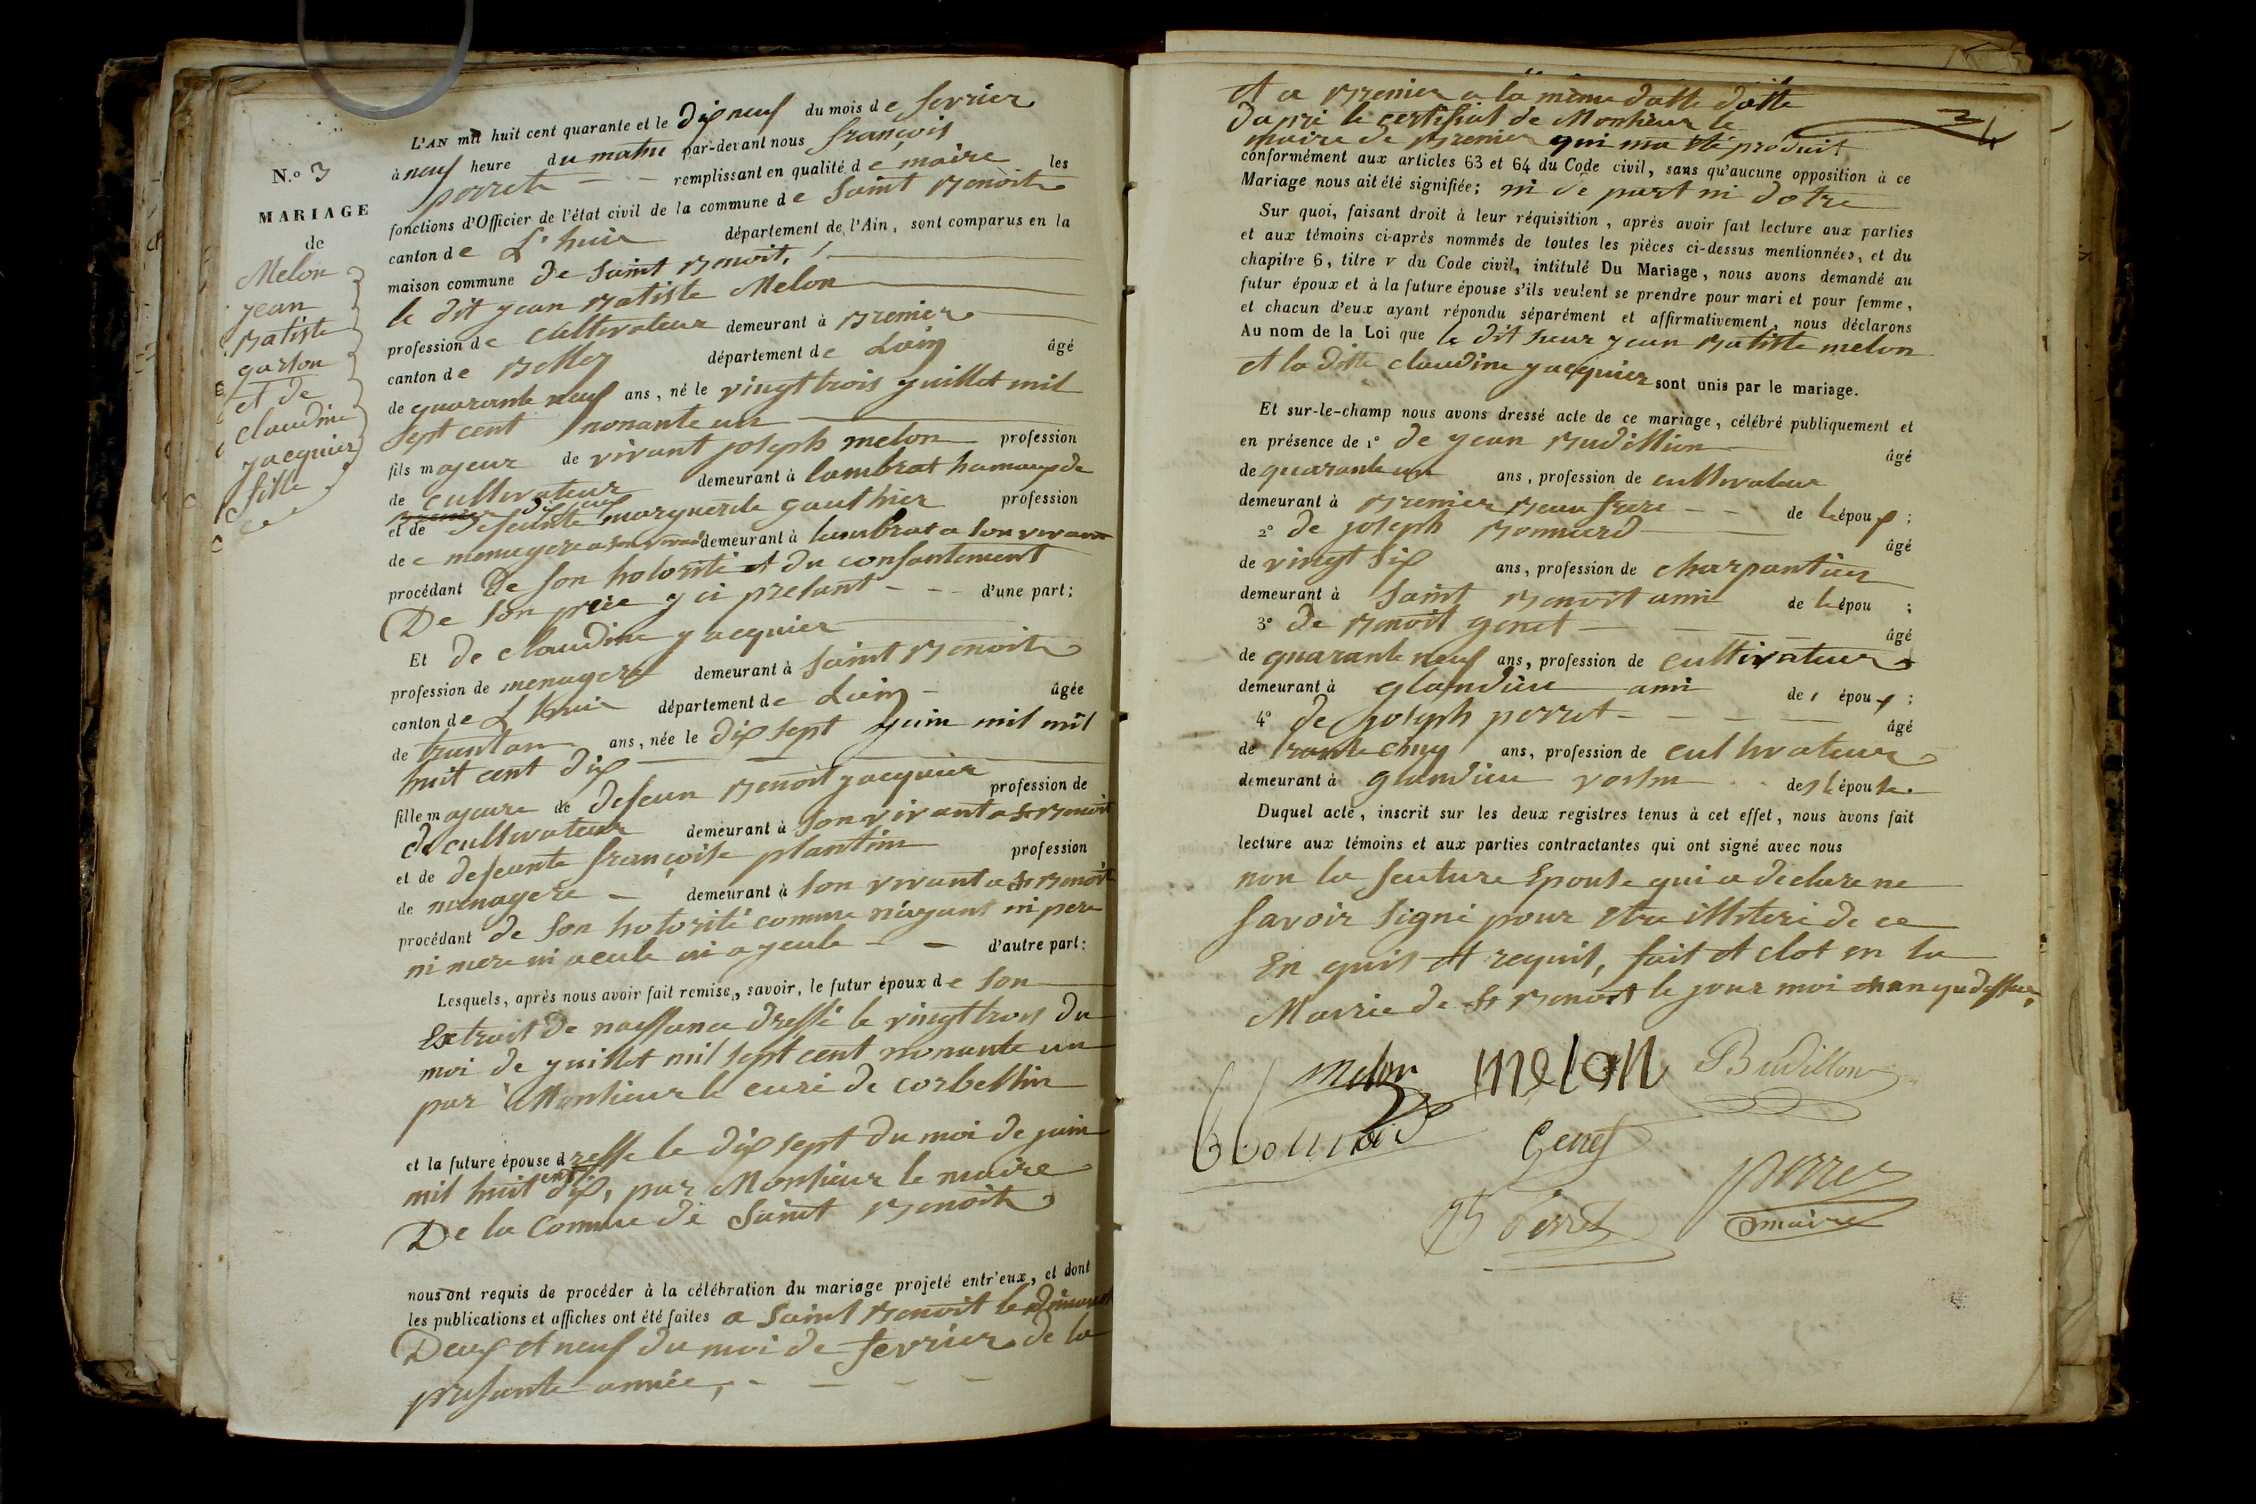 N.° 3
MARIAGE
de
Melon
jean
Batiste
garson
et de
claudine
jacquier
fille
L'AN mil huit cent quarante et le dix neuf du mois de fevrier
à neuf heure du matin par-devant nous françois
perret remplissant en qualité de maire les
fonctions d'Officier de l'état civil de la commune de Saint Benoit
canton de L'huis département de l'Ain, sont comparus en la
maison commune de Saint Benoit,
le dit jean Batiste Melon
profession de cultivateur demeurant à Brenier
canton de Belley département de Lain âgé
de quarante neuf ans, né le vingt trois juillet mil
sept cent nonante un
fils majeur de vivant joseph melon profession
de cultivateur demeurant à lambrat hamaux de
et de defeunte marguerite gauthier profession
de menagere a son vivant demeurant à lambrat a son vivant
procédant De son hotorité et du consantement
De son père y ci presant d'une part;
Et de claudine jacquier
profession de menagere demeurant à Saint Benoit
canton de L'huis département de Lain âgée
de trantan ans, née le dix sept juin mil mil
huit cent dix
fille majeure de defeun Benoit jacquier profession de
de cultivateur demeurant à son vivant a St Benoit
et de defeunte françoise plantin profession
de menagere demeurant à son vivant a St Benoit
procédant de son hotorité comme n'ayant ni pere
ni mere ni aeule ni ayeule d'autre part:
Lesquels, après nous avoir fait remise, savoir, le futur époux de son
Extrait de naessance dressé le vingt trois du
moi de juillet mil sept cent nonante un
par Monsieur le curé de corbellin
et la future épouse dresse le dix sept du moi de juin
mil huit cent dix, par Monsieur le maire
De la Commune de Saint Benoit
nous ont requis de procéder à la célébration du mariage projeté entr'eux, et dont
les publications et affiches ont été faites a Saint Benoit le dimanche
Deux et neuf du moi de fevrier de la
presante année,
et a Brenier a la même datte datte
Dapré le certificat de Monsieur le
maire de Brenier qui ma été produit
conformément aux articles 63 et 64 du Code civil, sans qu'aucune opposition à ce
Mariage nous ait été signifiée; ni de part ni dotre
Sur quoi, faisant droit à leur réquisition, après avoir fait lecture aux parties
et aux témoins ci-après nommés de toutes les pièces ci-dessus mentionnées, et du
chapitre 6, titre v du Code civil, intitulé Du Mariage, nous avons demandé au
futur époux et à la future épouse s'ils veulent se prendre pour mari et pour femme,
et chacun d'eux ayant répondu séparément et affirmativement, nous déclarons
Au nom de la Loi que le dit sieur jean Batiste melon
et la ditte claudine jacquier sont unis par le mariage.
Et sur-le-champ nous avons dressé acte de ce mariage, célébré publiquement et
en présence de 1° de jean Budillion âgé
de quarante un ans, profession de cultivateur
demeurant à Brenier Beau frere de lépoux;
2° de joseph Bonnard âgé
de vingt six ans, profession de charpantier
demeurant à Saint Benoit ami de lépou;
3° de Benoit genet âgé
de quarante neuf ans, profession de cultivateur
demeurant à glandieu ami de époux;
4° de joseph perret âgé
de trante cinq ans, profession de cultivateur
demeurant à glandieu voisin de l'épouse.
Duquel acte, inscrit sur les deux registres tenus à cet effet, nous avons fait
lecture aux témoins et aux parties contractantes qui ont signé avec nous
non la feuture Epouse qui a déclaré ne
Savoir Signé pour etre illiteré de ce
En quis et requis, fait et clot en la
Mairie de St Benoit le jour moi et an que dessus,
Melon melon Budillon
Bonnard Genet
Perret perret
maire